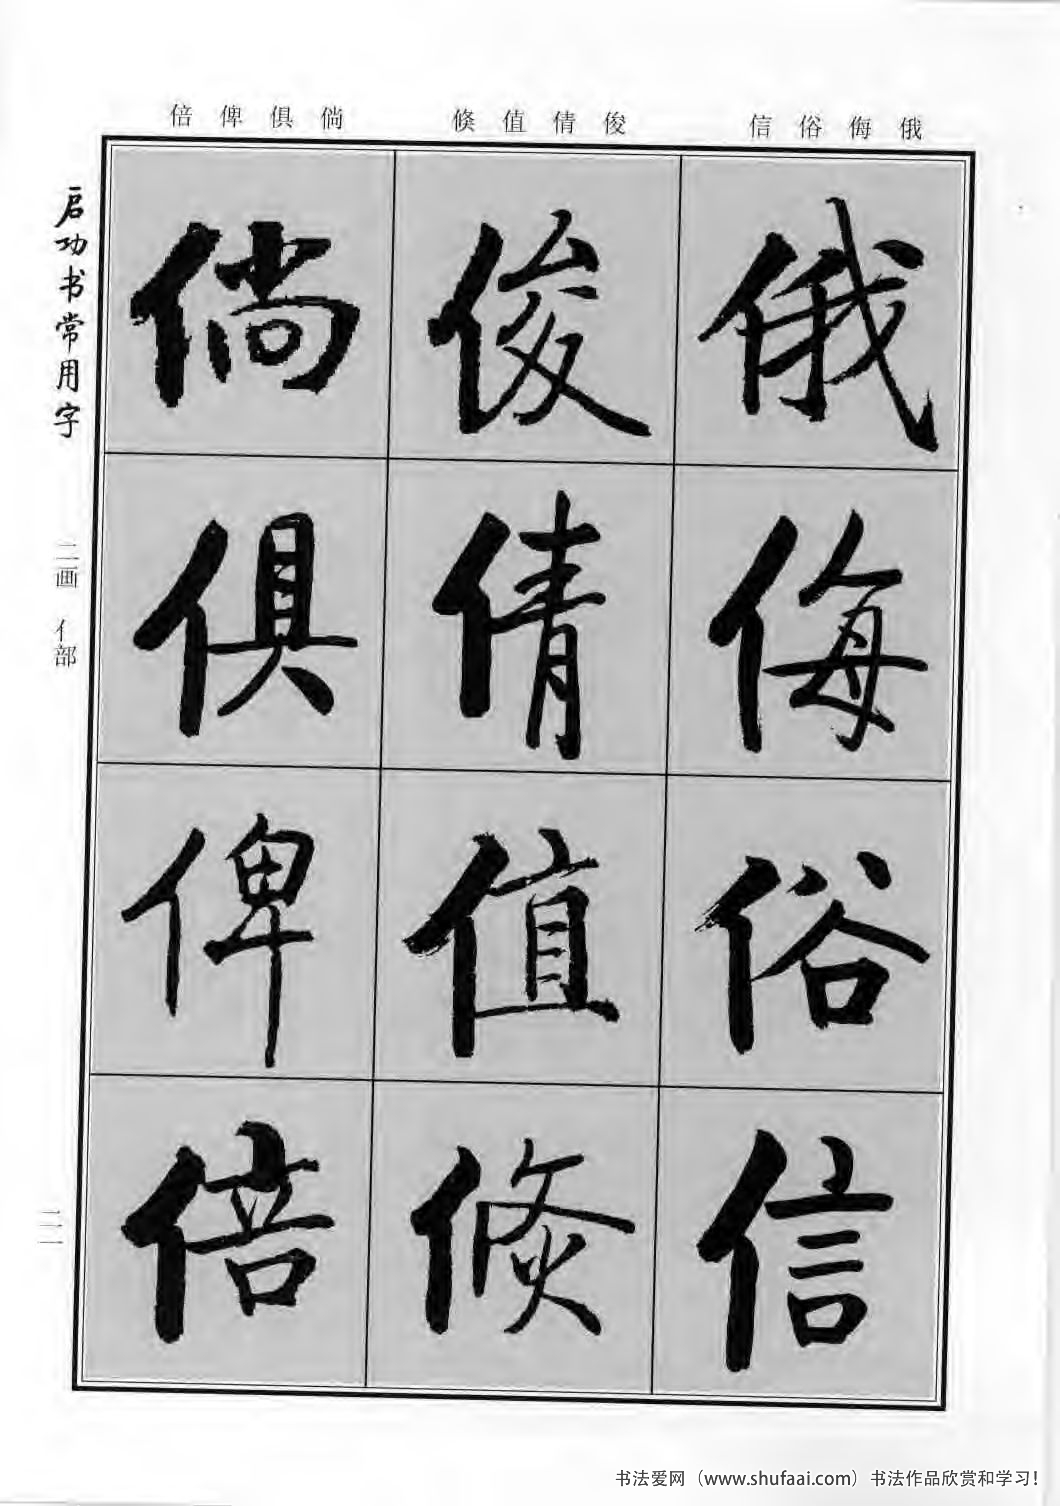 倍 俾 俱 倘
倏 值 倩 俊
信 俗 侮 俄
启功书常用字
二画 亻部
二一
俄 侮 俗 信
俊 倩 值 倏
倘 俱 俾 倍
书法爱网（www.shufaai.com）书法作品欣赏和学习！